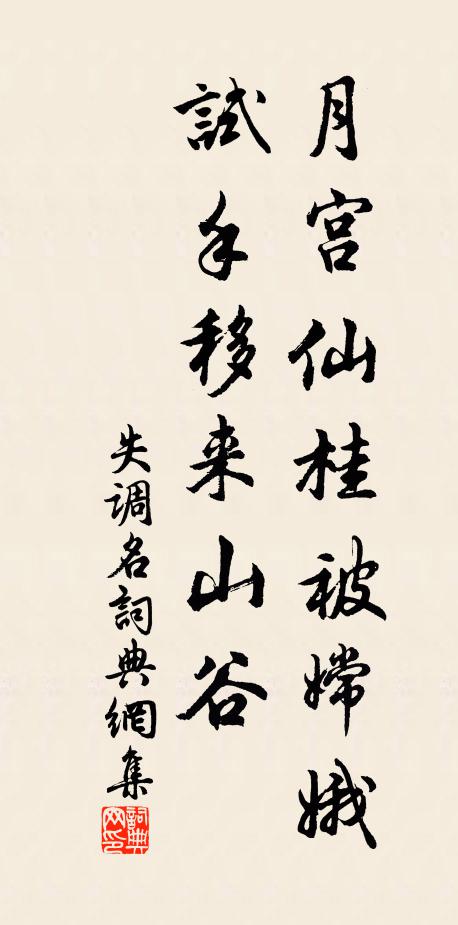 月宫仙桂被嫦娥
試手移来山谷
失调名詞典網集
詞典网印